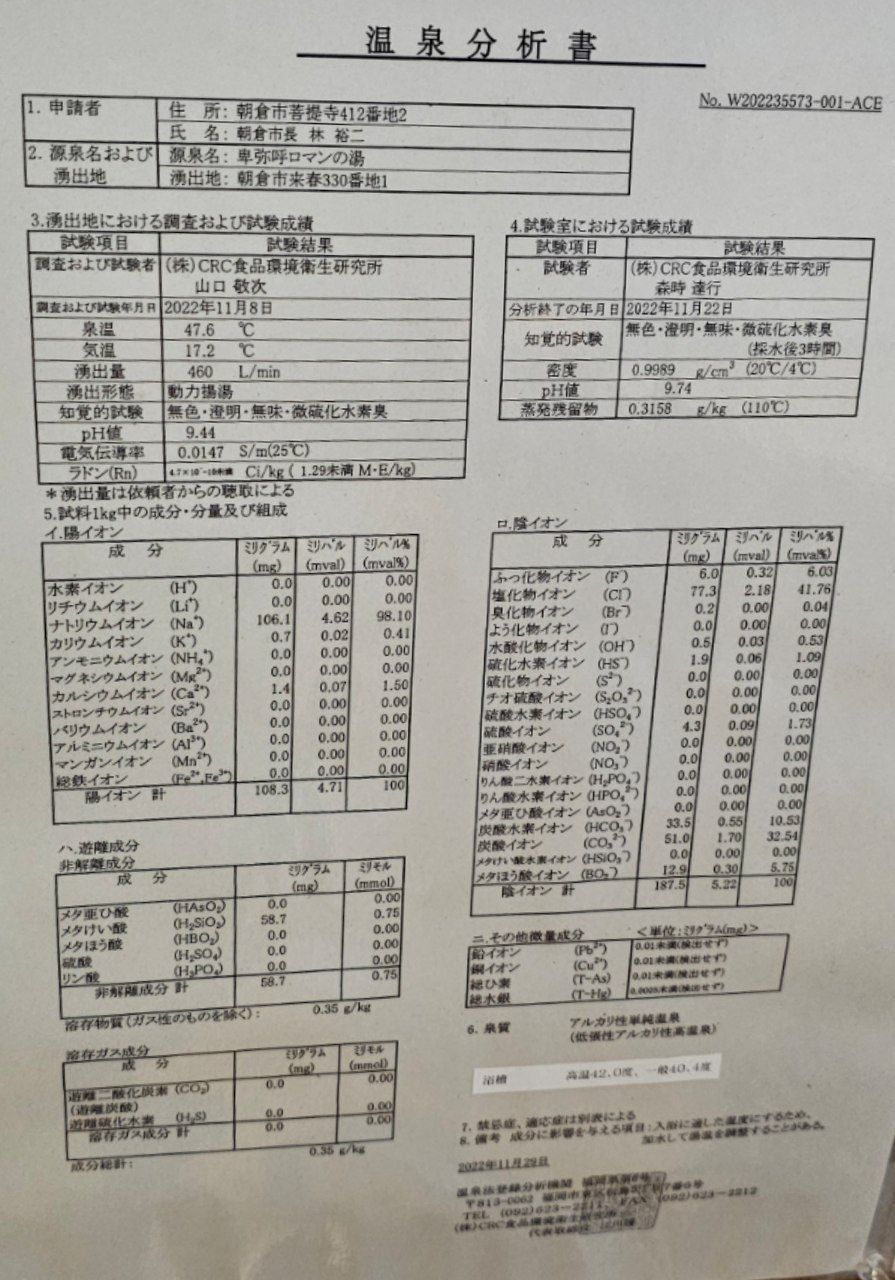 温泉分析書
No. W202235573-001-ACE
1. 申請者 住 所: 朝倉市菩提寺412番地2
氏 名: 朝倉市長 林 裕二
2. 源泉名および 源泉名: 卑弥呼ロマンの湯
湧出地 湧出地: 朝倉市来春330番地1
3.湧出地における調査および試験成績
試験項目 試験結果
調査および試験者 (株)CRC食品環境衛生研究所
山口 敬次
調査および試験年月日 2022年11月8日
泉温 47.6 ℃
気温 17.2 ℃
湧出量 460 L/min
湧出形態 動力揚湯
知覚的試験 無色・澄明・無味・微硫化水素臭
pH値 9.44
電気伝導率 0.0147 S/m(25℃)
ラドン(Rn) 4.7×10⁻¹⁰未満 Ci/kg ( 1.29未満 M・E/kg)
*湧出量は依頼者からの聴取による
4.試験室における試験成績
試験項目 試験結果
試験者 (株)CRC食品環境衛生研究所
森時 達行
分析終了の年月日 2022年11月22日
知覚的試験 無色・澄明・無味・微硫化水素臭
(採水後3時間)
密度 0.9989 g/cm³ (20℃/4℃)
pH値 9.74
蒸発残留物 0.3158 g/kg (110℃)
5.試料1kg中の成分・分量及び組成
イ.陽イオン
成 分 ミリグラム (mg) ミリバル (mval) ミリバル% (mval%)
水素イオン (H⁺) 0.0 0.00 0.00
リチウムイオン (Li⁺) 0.0 0.00 0.00
ナトリウムイオン (Na⁺) 106.1 4.62 98.10
カリウムイオン (K⁺) 0.7 0.02 0.41
アンモニウムイオン (NH₄⁺) 0.0 0.00 0.00
マグネシウムイオン (Mg²⁺) 0.0 0.00 0.00
カルシウムイオン (Ca²⁺) 1.4 0.07 1.50
ストロンチウムイオン (Sr²⁺) 0.0 0.00 0.00
バリウムイオン (Ba²⁺) 0.0 0.00 0.00
アルミニウムイオン (Al³⁺) 0.0 0.00 0.00
マンガンイオン (Mn²⁺) 0.0 0.00 0.00
総鉄イオン (Fe²⁺,Fe³⁺) 0.0 0.00 0.00
陽イオン 計 108.3 4.71 100
ロ.陰イオン
成 分 ミリグラム (mg) ミリバル (mval) ミリバル% (mval%)
ふっ化物イオン (F⁻) 6.0 0.32 6.03
塩化物イオン (Cl⁻) 77.3 2.18 41.76
臭化物イオン (Br⁻) 0.2 0.00 0.04
よう化物イオン (I⁻) 0.0 0.00 0.00
水酸化物イオン (OH⁻) 0.5 0.03 0.53
硫化水素イオン (HS⁻) 1.9 0.06 1.09
硫化物イオン (S²⁻) 0.0 0.00 0.00
チオ硫酸イオン (S₂O₃²⁻) 0.0 0.00 0.00
硫酸水素イオン (HSO₄⁻) 0.0 0.00 0.00
硫酸イオン (SO₄²⁻) 4.3 0.09 1.73
亜硝酸イオン (NO₂⁻) 0.0 0.00 0.00
硝酸イオン (NO₃⁻) 0.0 0.00 0.00
りん酸二水素イオン (H₂PO₄⁻) 0.0 0.00 0.00
りん酸水素イオン (HPO₄²⁻) 0.0 0.00 0.00
メタ亜ひ酸イオン (AsO₂⁻) 0.0 0.00 0.00
炭酸水素イオン (HCO₃⁻) 33.5 0.55 10.53
炭酸イオン (CO₃²⁻) 51.0 1.70 32.54
メタけい酸水素イオン (HSiO₃⁻) 0.0 0.00 0.00
メタほう酸イオン (BO₂⁻) 12.9 0.30 5.75
陰イオン 計 187.5 5.22 100
ハ.遊離成分
非解離成分
成 分 ミリグラム (mg) ミリモル (mmol)
メタ亜ひ酸 (HAsO₂) 0.0 0.00
メタけい酸 (H₂SiO₃) 58.7 0.75
メタほう酸 (HBO₂) 0.0 0.00
硫酸 (H₂SO₄) 0.0 0.00
リン酸 (H₃PO₄) 0.0 0.00
非解離成分 計 58.7 0.75
溶存物質(ガス性のものを除く): 0.35 g/kg
溶存ガス成分
成 分 ミリグラム (mg) ミリモル (mmol)
遊離二酸化炭素 (CO₂) 0.0 0.00
(遊離炭酸)
遊離硫化水素 (H₂S) 0.0 0.00
溶存ガス成分 計 0.0 0.00
成分総計: 0.35 g/kg
ニ.その他微量成分 <単位:ミリグラム(mg)>
鉛イオン (Pb²⁺) 0.01未満(検出せず)
銅イオン (Cu²⁺) 0.01未満(検出せず)
総ひ素 (T-As) 0.01未満(検出せず)
総水銀 (T-Hg) 0.0005未満(検出せず)
6. 泉質 アルカリ性単純温泉
(低張性アルカリ性高温泉)
浴槽 高温42.0度、一般40.4度
7. 禁忌症、適応症は別表による
8. 備考 成分に影響を与える項目:入浴に適した温度にするため、
加水して湯温を調整することがある。
2022年11月29日
温泉法登録分析機関 福岡県第6号
〒813-0062 福岡市東区松島5丁目7番6号
TEL (092)623-2211, FAX (092)623-2212
(株)CRC食品環境衛生研究所
代表取締役